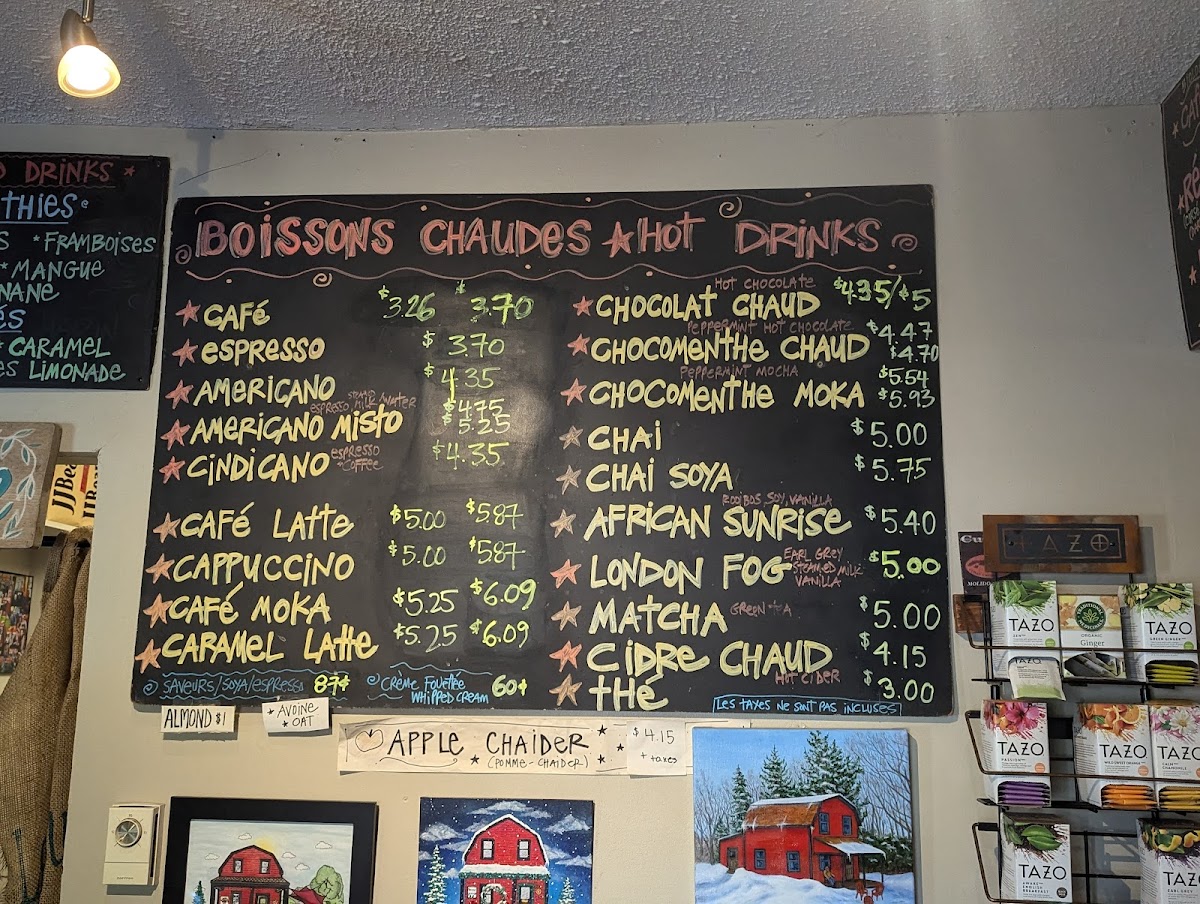 DRINKS *
THIES
* FRAMBOISES
* MANGUE
NANE
* CARAMEL
ES LIMONADE
BOISSONS CHAUDES ★ HOT DRINKS
CAFÉ $3.26 $3.70
ESPRESSO $3.70
AMERICANO $4.35
ESPRESSO STEAMED MILK/WATER
AMERICANO MISTO $4.75 $5.25
CINDICANO ESPRESSO + COFFEE $4.35
CAFÉ LATTE $5.00 $5.87
CAPPUCCINO $5.00 $5.87
CAFÉ MOKA $5.25 $6.09
CARAMEL LATTE $5.25 $6.09
SAVEURS/SOYA/ESPRESSO 87¢
CRÈME FOUETTÉE
WHIPPED CREAM 60¢
HOT CHOCOLATE
CHOCOLAT CHAUD $4.35/$5
PEPPERMINT HOT CHOCOLATE
CHOCOMENTHE CHAUD $4.47 $4.70
PEPPERMINT MOCHA
CHOCOMENTHE MOKA $5.54 $5.93
CHAI $5.00
CHAI SOYA $5.75
ROOIBOS, SOY, VANILLA
AFRICAN SUNRISE $5.40
LONDON FOG EARL GREY STEAMED MILK VANILLA $5.00
MATCHA GREEN TEA $5.00
CIDRE CHAUD $4.15
HOT CIDER
THÉ $3.00
LES TAXES NE SONT PAS INCLUSES
ALMOND $1
* AVOINE
* OAT
APPLE CHAIDER
(POMME-CHAIDER)
$4.15
+ taxes
JJBea
TAZO
TAZO
ORGANIC
Ginger
TAZO
GREEN GINGER
TAZO
TAZO
PASSION
TAZO
WILD SWEET ORANGE
TAZO
CALM CHAMOMILE
TAZO
AWAKE
ENGLISH
BREAKFAST
TAZO
EARL GREY